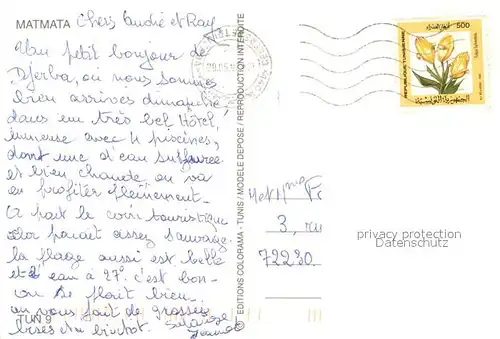 MATMATA
Chers André et Ray
Un petit bonjour de
Djerba, où nous sommes
bien arrivés dimanche
dans un très bel Hôtel,
immense avec 4 piscines,
dont une d'eau sulfurée
et bien chaude on va
en profiter pleinement.
A part le coin touristique
paraît assez sauvage
la plage aussi est belle
et l'eau à 27° c'est bon-
on se plait bien
on vous fait de grosses
bises et un bientot.
TUN 9
EDITIONS COLORAMA - TUNIS / MODELE DEPOSE / REPRODUCTION INTERDITE
500
REPUBLIQUE TUNISIENNE
الجمهورية التونسية
Mr et Mme
3, ru
72230
privacy protection
Datenschutz